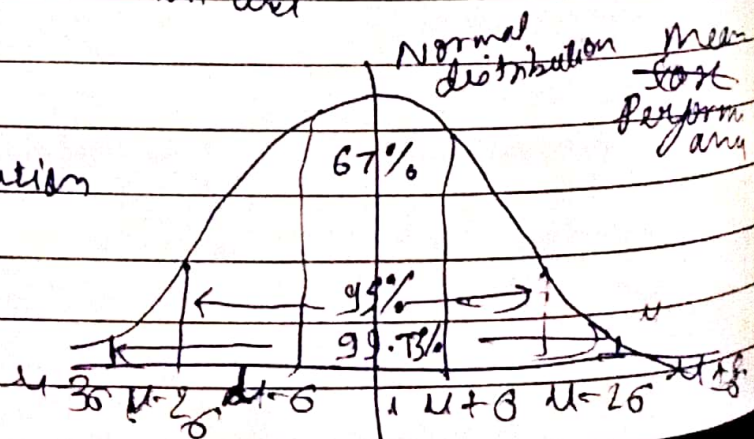 Normal Mean
distribution
Perform
any
ation
67%
95%
99.73%
μ 3σ μ-2σ μ-σ μ+σ μ-2σ μ+3σ